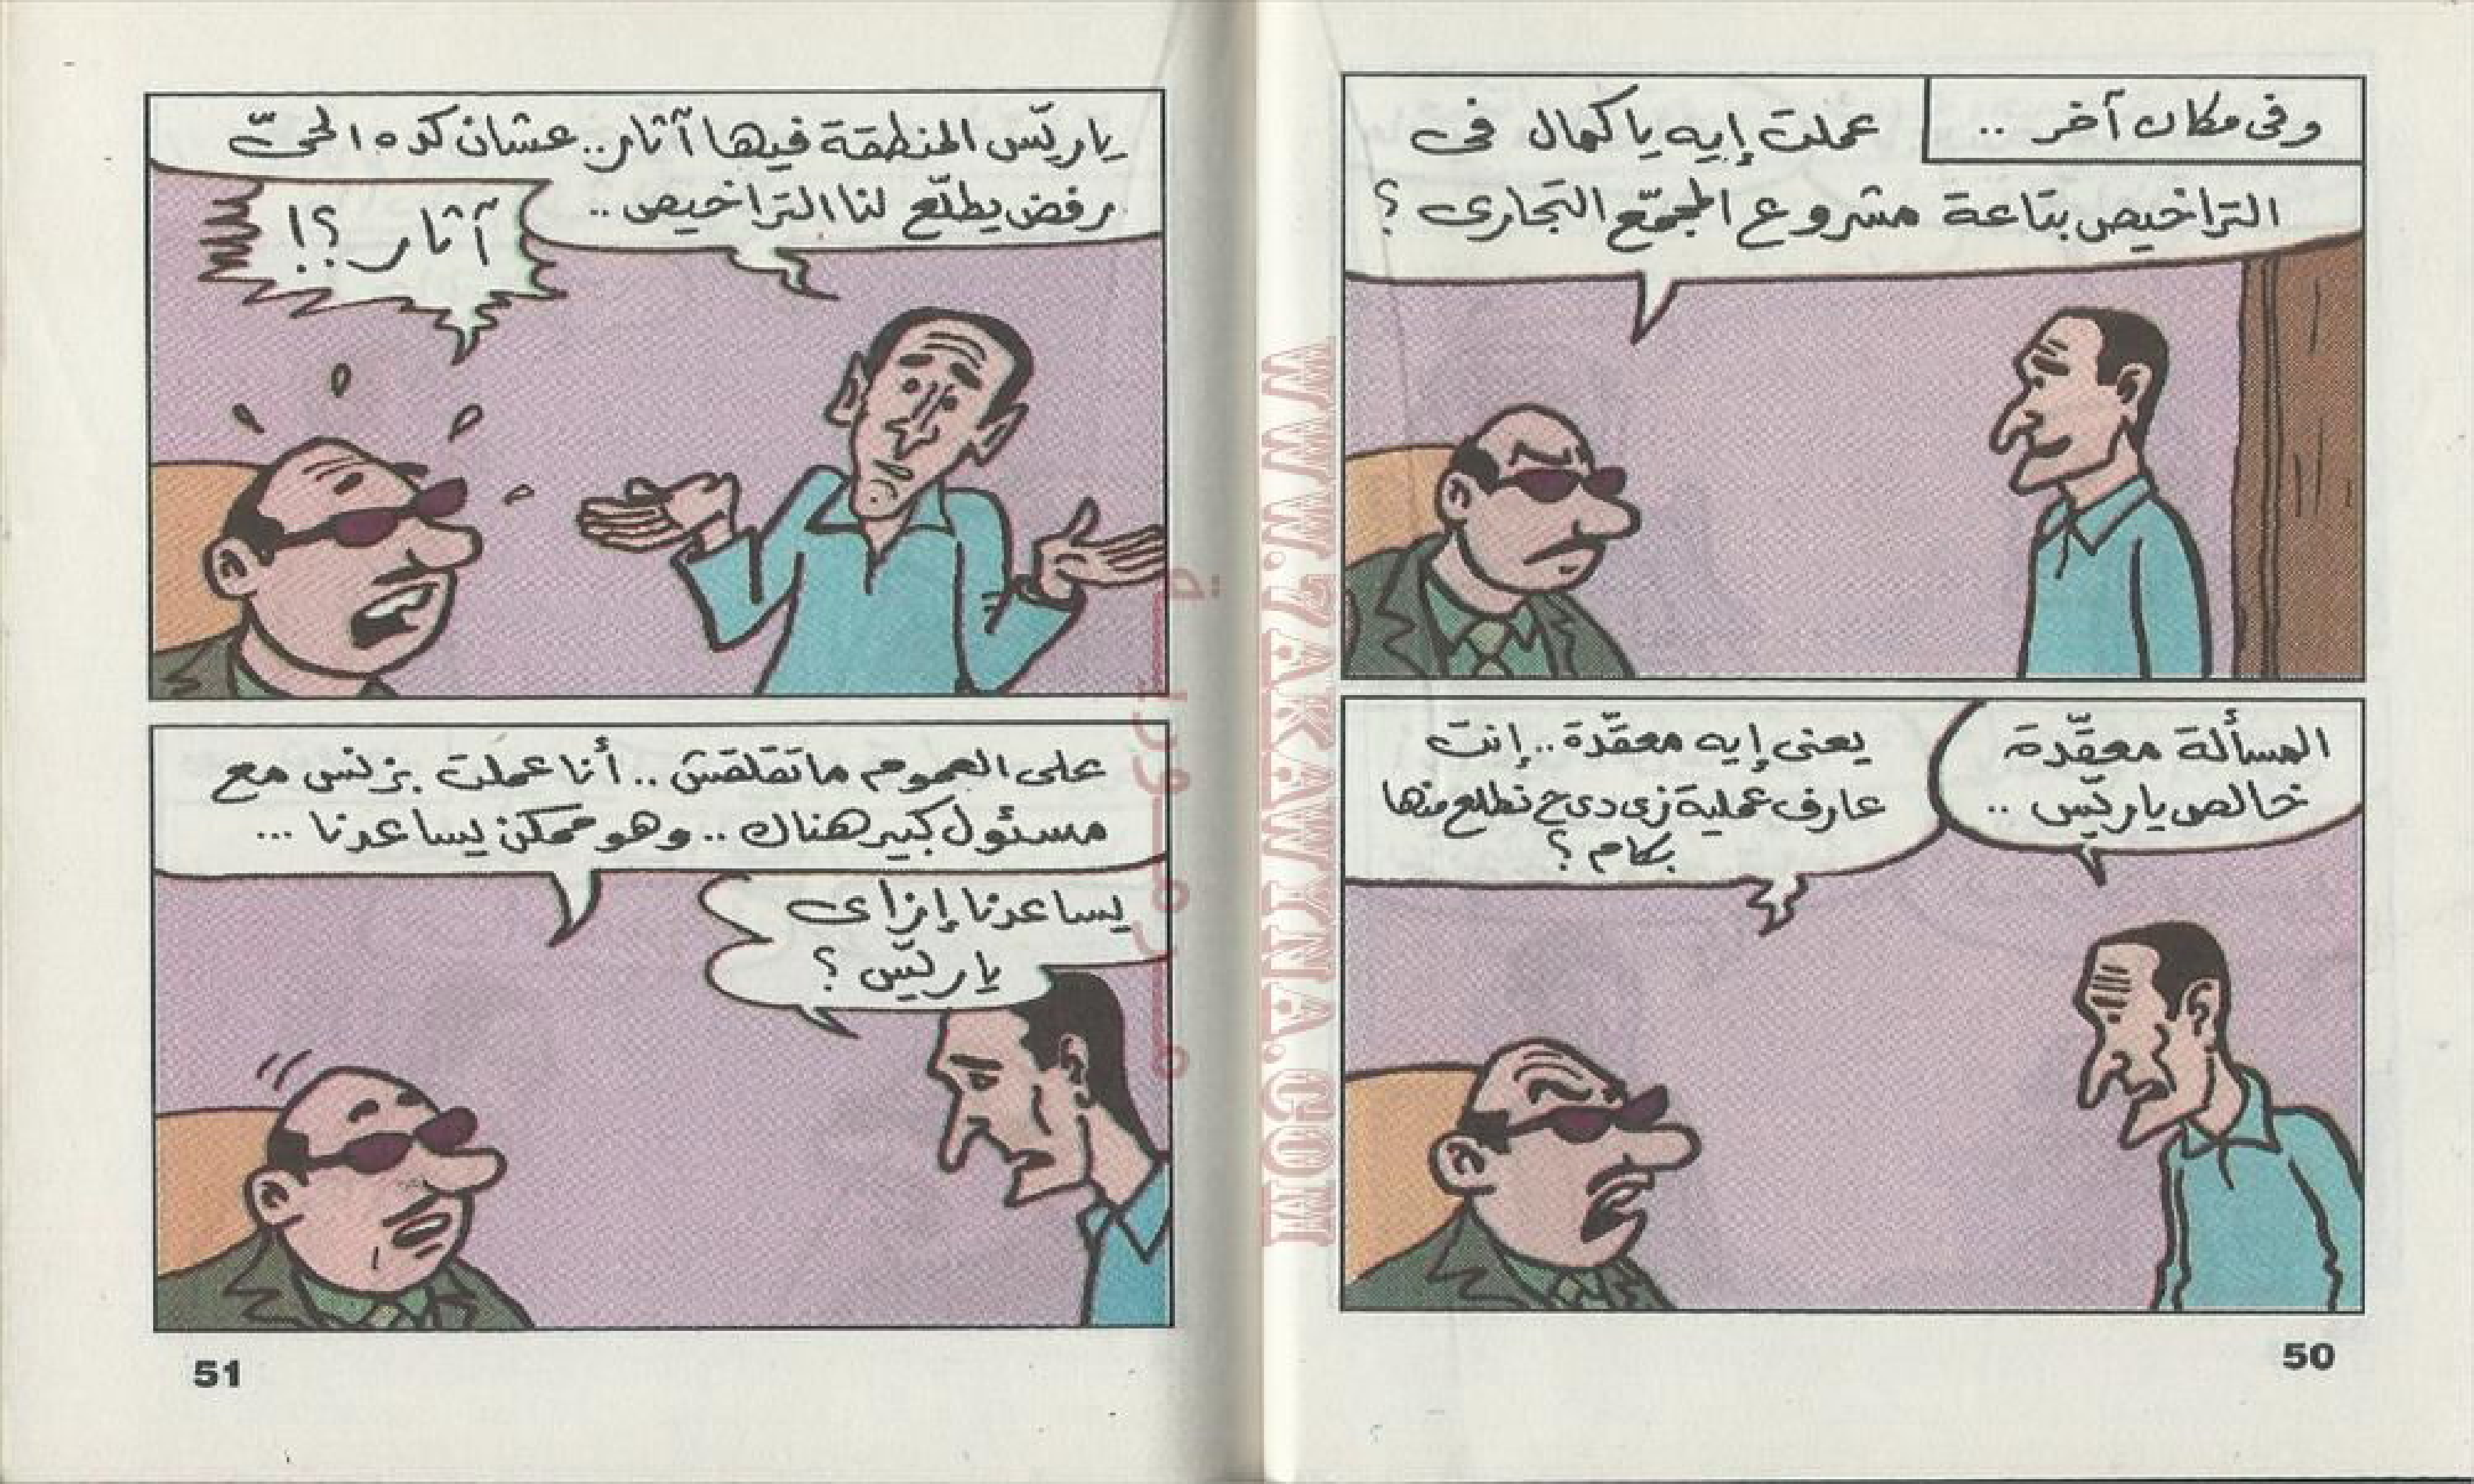 وفى مكان آخر ..
عملت إيه يا كمال فى
التراخيص بتاعة مشروع المجمّع التجارى ؟
المسألة معقّدة
خالص يا ريّس ..
يعنى إيه معقّدة .. إنت
عارف عملية زى دى ح نطلع منها
بكام ؟
50
يا ريّس المنطقة فيها آثار .. عشان كده الحىّ
رفض يطلّع لنا التراخيص ..
آثار ؟!
على العموم ماتقلقش .. أنا عملت بزنس مع
مسئول كبير هناك .. وهو ممكن يساعدنا ...
يساعدنا إزاى
يا ريّس ؟
51
WWW.7AKAWYNA.COM